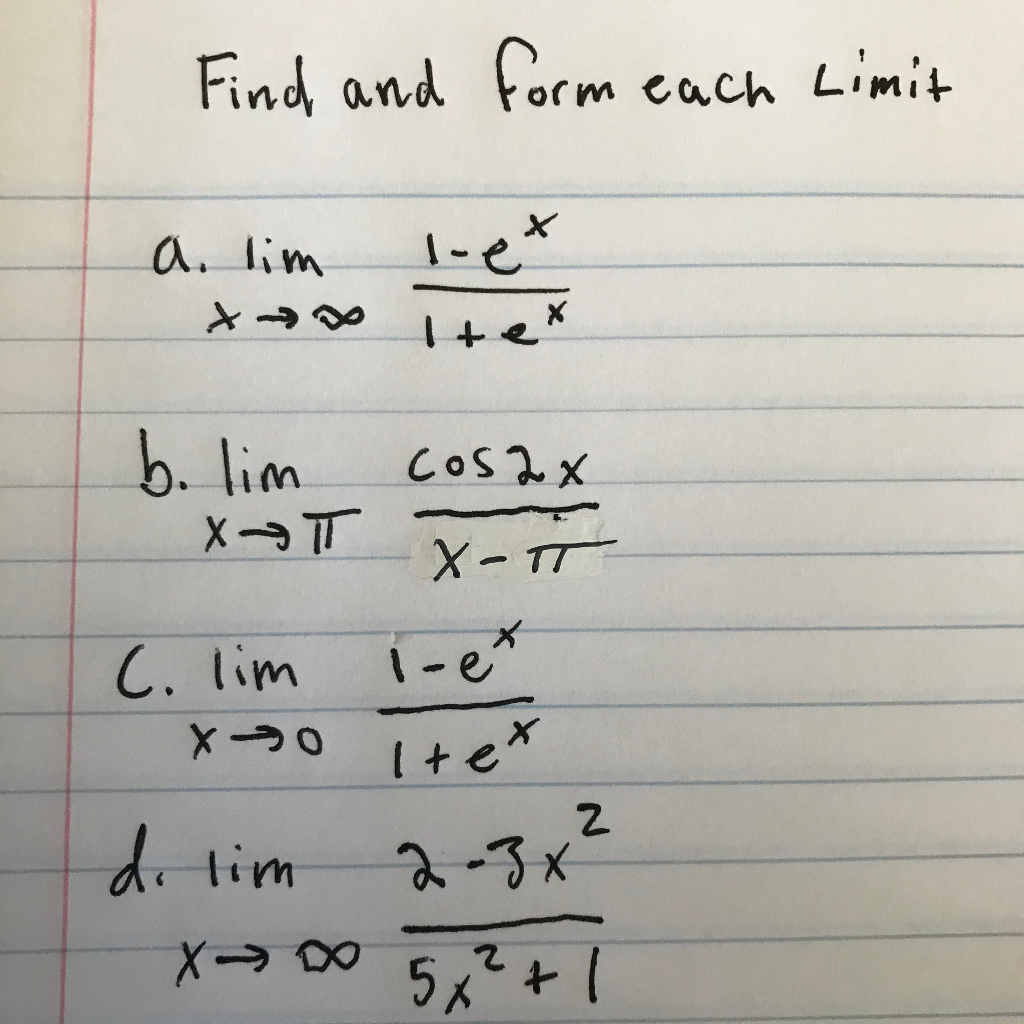 Find and form each Limit
a. lim x→∞ (1-e^x)/(1+e^x)
b. lim x→π (cos2x)/(x-π)
c. lim x→0 (1-e^x)/(1+e^x)
d. lim x→∞ (2-3x^2)/(5x^2+1)